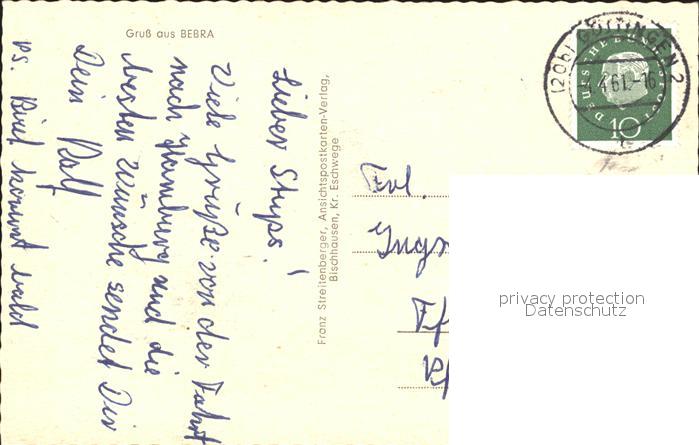 Gruß aus BEBRA
Lieber Stups!
Viele Grüße von der Fahrt
nach Hamburg und die
besten Wünsche sendet Dir
Dein Rolf
PS. Brief kommt bald
Franz Streitenberger, Ansichtspostkarten-Verlag,
Bischhausen, Kr. Eschwege
(20b) GÖTTINGEN 2
4.61.-16
DEUTSCHE BUNDESPOST
10
Frl.
privacy protection
Datenschutz